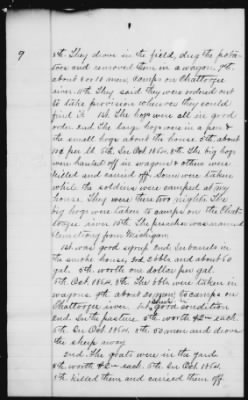 9
8th They drove in the field, dug the pota-
toes and removed them in a wagon, 9th.
about 8 or 10 men, camps on Chattooga
river. 10th They said they were ordered out
to take provision wherever they could
find it. 1st. The hogs were all in good
order 2nd The large hogs were in a pen &
the small hogs about the house 5th about
10¢ per lb. 7th. In Oct 1864. 8th. The big hogs
were hauled off in wagons & others were
killed and carried off. Some were taken
while the soldiers were camped at my
house. They were there two nights. The
big hogs were taken to camps on the Chat-
tooga river 10th. The preacher was named
from Michigan.
1st. was good syrup 2nd In barrels in
the smoke house, 3rd 2 bbls and about 60
gal. 5th. worth one dollar per gal.
7th. Oct 1864. 8th. The bbls were taken in
wagons, 9th. about 20 men, to camps on
Chattooga river. 1st, good condition
2nd. In the pasture 5th. worth $2— each.
7th. In Oct 1864, 8th. 50 men and drove
the sheep away
2nd. The goats were in the yard
5th. worth $2— each. 7th. Oct 1864.
8th killed them and carried them off